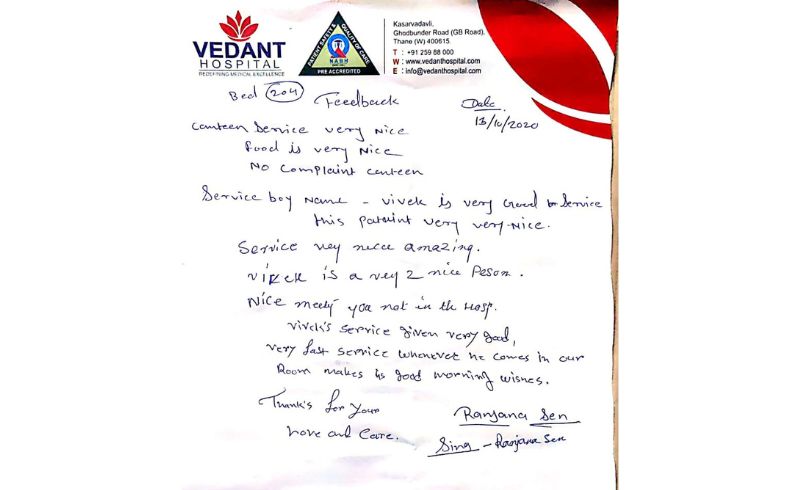 VEDANT
HOSPITAL
REDEFINING MEDICAL EXCELLENCE
PATIENT SAFETY & QUALITY OF CARE
NABH
PRE ACCREDITED
Kasarvadavli,
Ghodbunder Road (GB Road),
Thane (W) 400615.
T : +91 259 88 000
W : www.vedanthospital.com
E : info@vedanthospital.com
Bed 204
Feedback
Date
13/10/2020
Canteen Service very Nice
Food is very Nice
No Complaint canteen
Service boy Name - vivek is very Service
this very very Nice.
Service vey amazing.
vivek is a vey 2 nice Peson.
Nice you not in th Hosp.
vivek's Service given very good,
very fast service whenever he comes in our
Room makes good morning wishes.
Thank's for your
Love and Care.
Ranjana Sen
Sing - Ranjana Sen